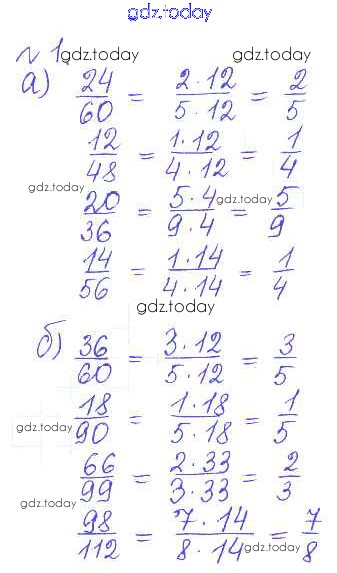 gdz.today
№ 1. gdz.today gdz.today
а) 24/60 = 2·12/5·12 = 2/5
12/48 = 1·12/4·12 = 1/4
gdz.today 20/36 = 5·4/9·4 = 5/9 gdz.today
14/56 = 1·14/4·14 = 1/4
gdz.today
б) 36/60 = 3·12/5·12 = 3/5
gdz.today 18/90 = 1·18/5·18 = 1/5
66/99 = 2·33/3·33 = 2/3
gdz.today 98/112 = 7·14/8·14 = 7/8 gdz.today